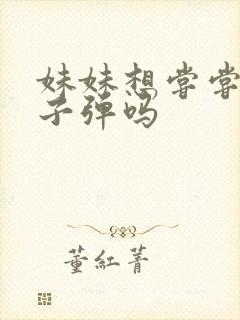 妹妹想尝尝
子弹吗
董红菁